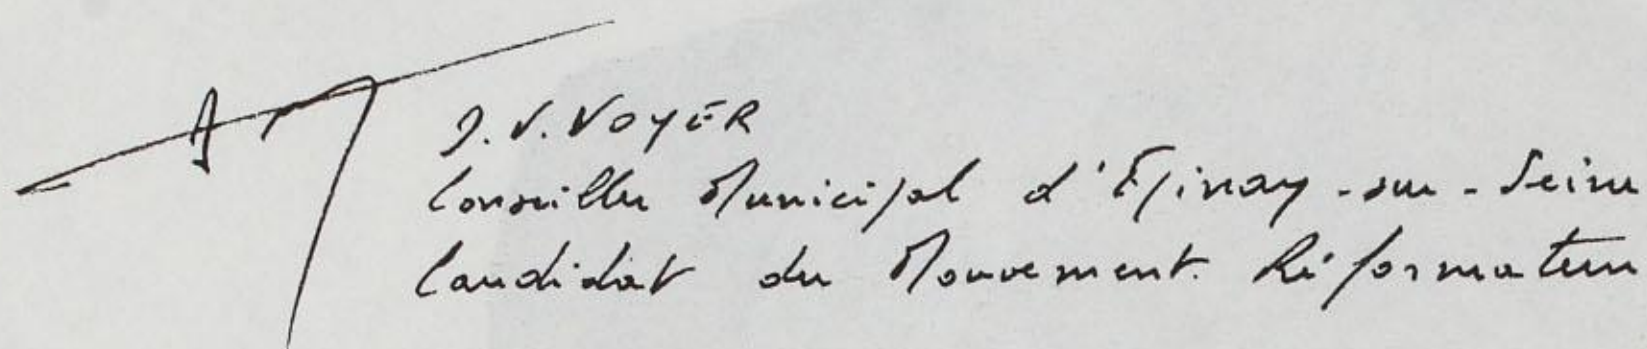 J.V. VOYER
Conseiller Municipal d'Epinay-sur-Seine
Candidat du Mouvement Réformateur